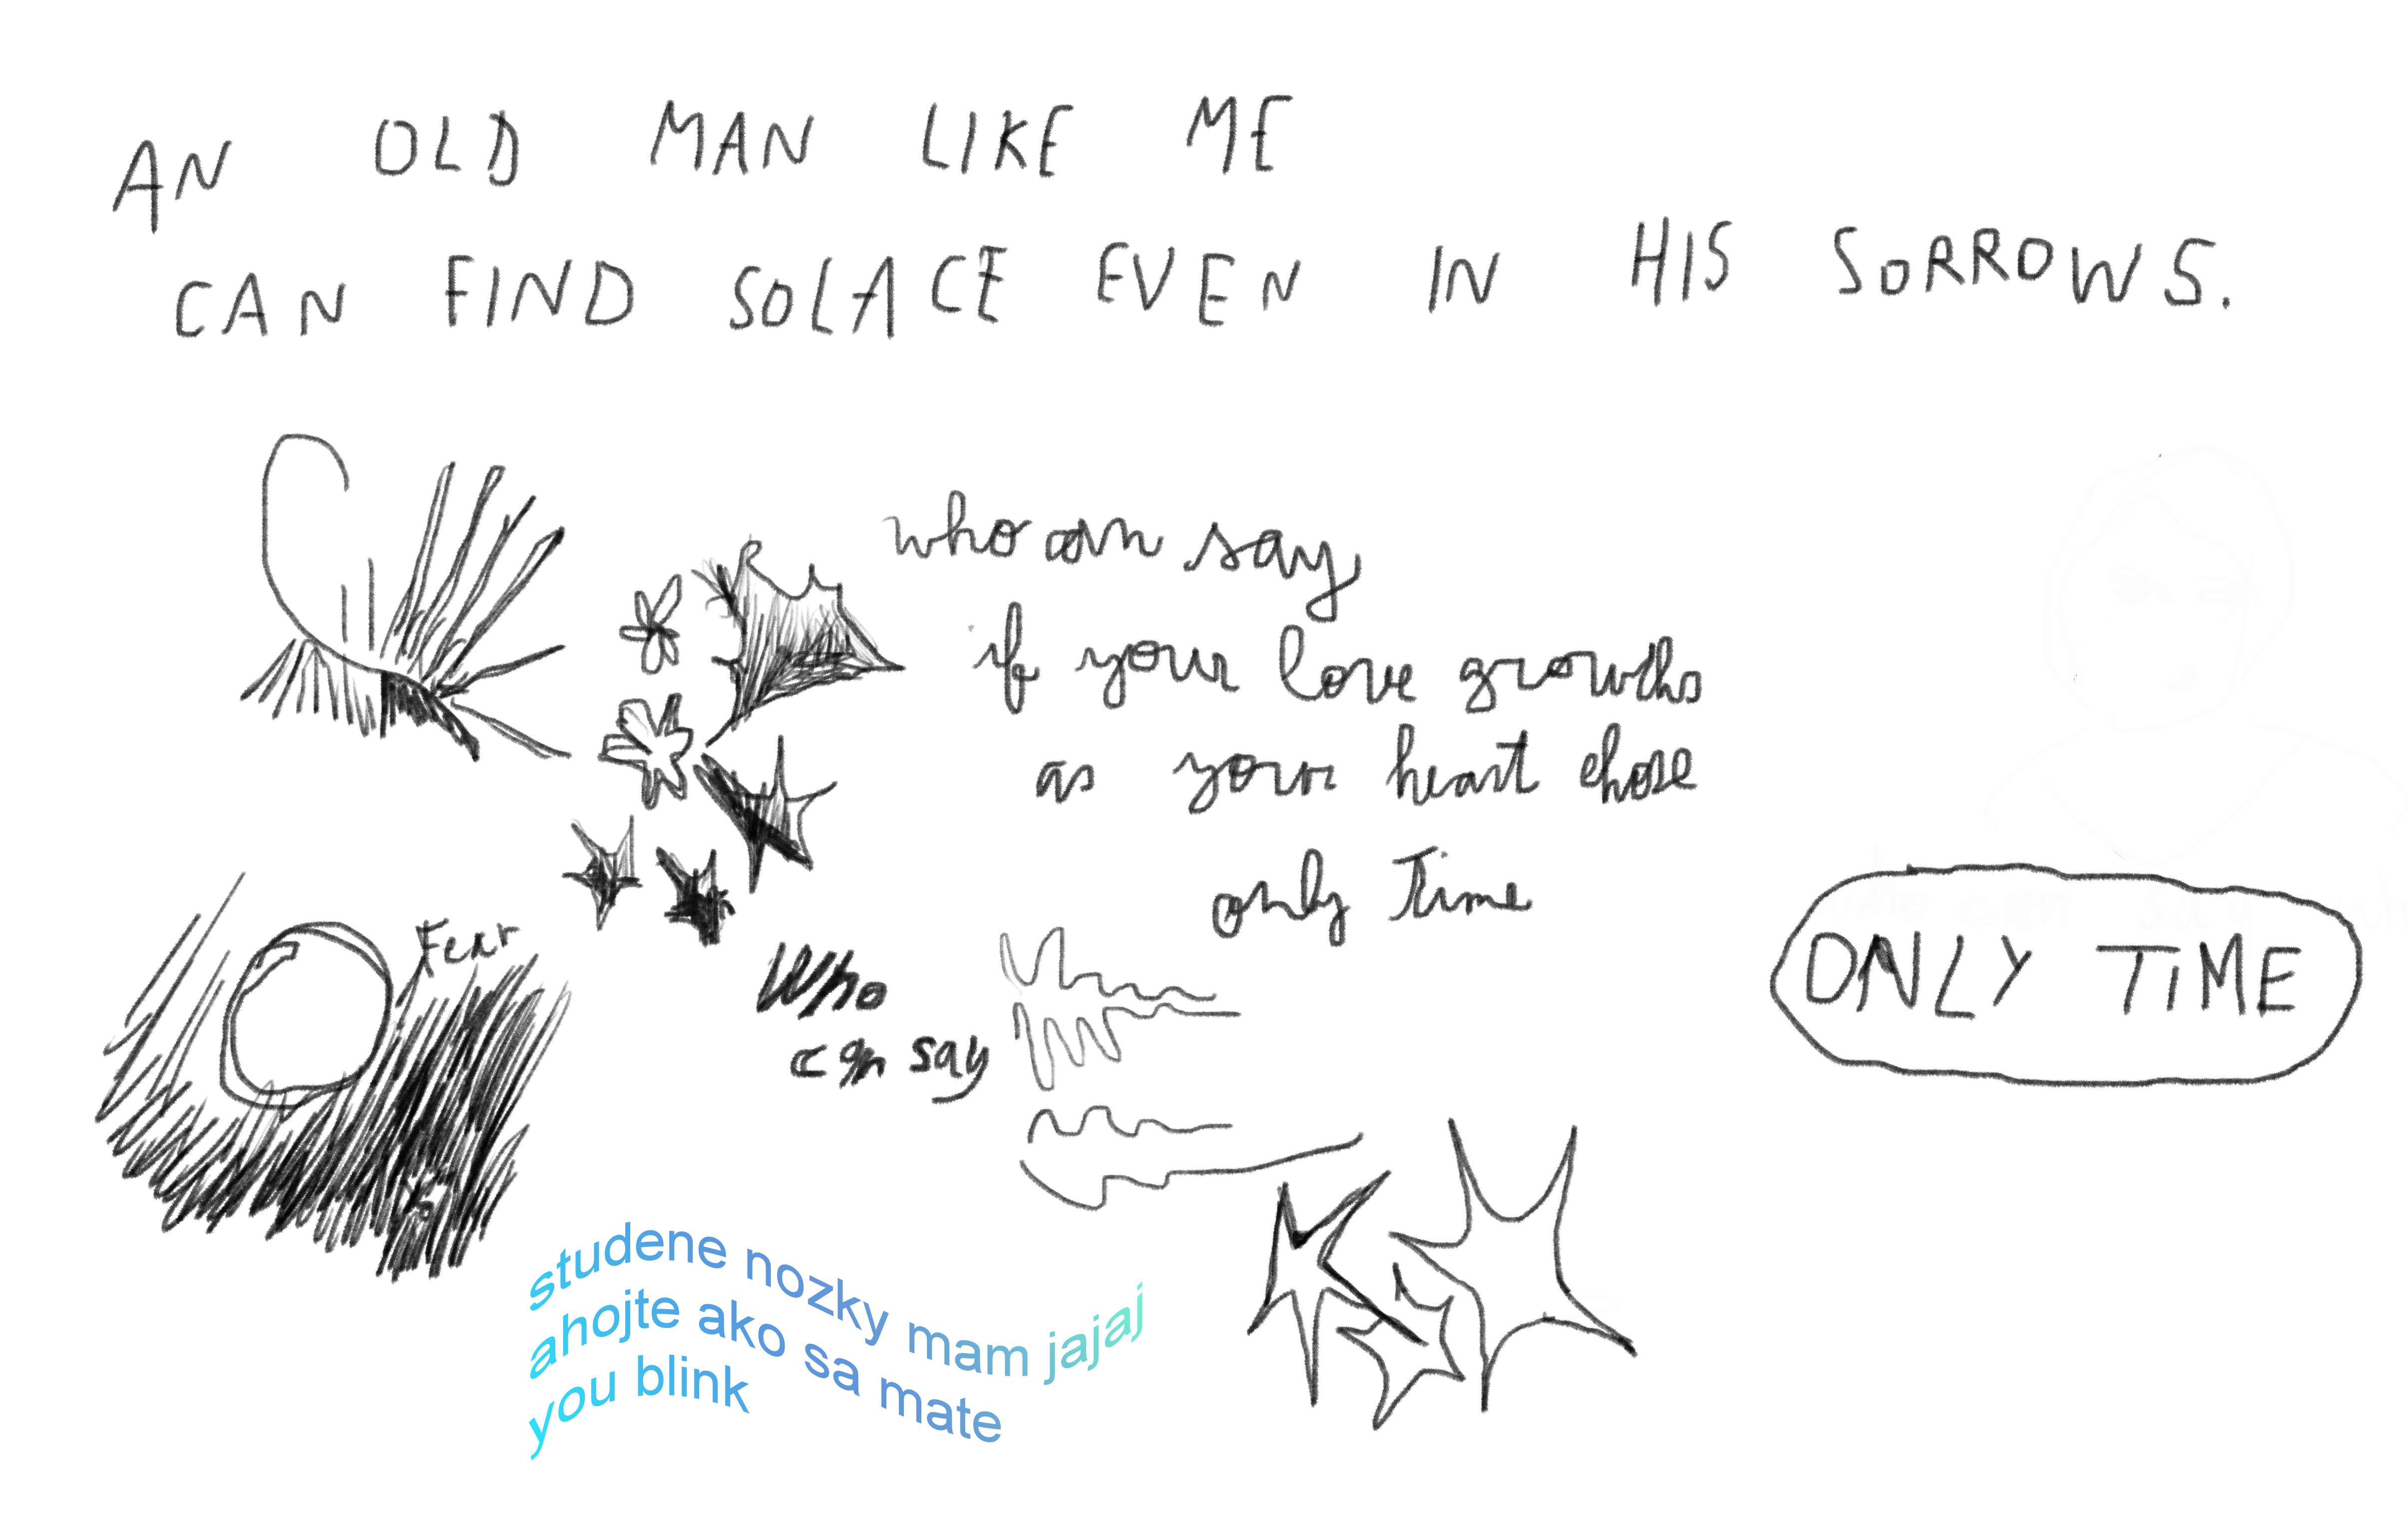 AN OLD MAN LIKE ME
CAN FIND SOLACE EVEN IN HIS SORROWS.
who can say
if your love growths
as your heart chose
only Time
Fear
Who
can say
ONLY TIME
studene nozky mam jajaj
ahojte ako sa mate
you blink